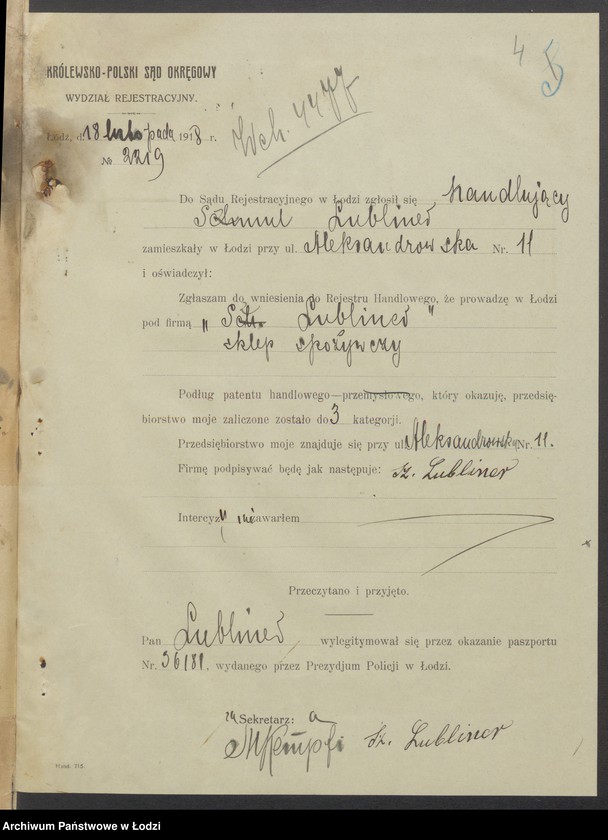 4 5
KRÓLEWSKO-POLSKI SĄD OKRĘGOWY
WYDZIAŁ REJESTRACYJNY.
Łódź, d. 18 listopada 1918 r.
№ 2219
Wch. 4477
Do Sądu Rejestracyjnego w Łodzi zgłosił się handlujący
Szmul Lubliner
zamieszkały w Łodzi przy ul. Aleksandrowska Nr. 11
i oświadczył:
Zgłaszam do wniesienia do Rejestru Handlowego, że prowadzę w Łodzi
pod firmą „Sz. Lubliner"
sklep spożywczy
Podług patentu handlowego—przemysłowego, który okazuję, przedsię-
biorstwo moje zaliczone zostało do 3 kategorji.
Przedsiębiorstwo moje znajduje się przy ul. Aleksandrowska Nr. 11.
Firmę podpisywać będę jak następuje: Sz. Lubliner
Intercyzy nie zawarłem
Przeczytano i przyjęto.
Pan Lubliner, wylegitymował się przez okazanie paszportu
Nr. 36181, wydanego przez Prezydjum Policji w Łodzi.
za Sekretarz:
MKempfi Sz. Lubliner
Hand. 112.
Archiwum Państwowe w Łodzi